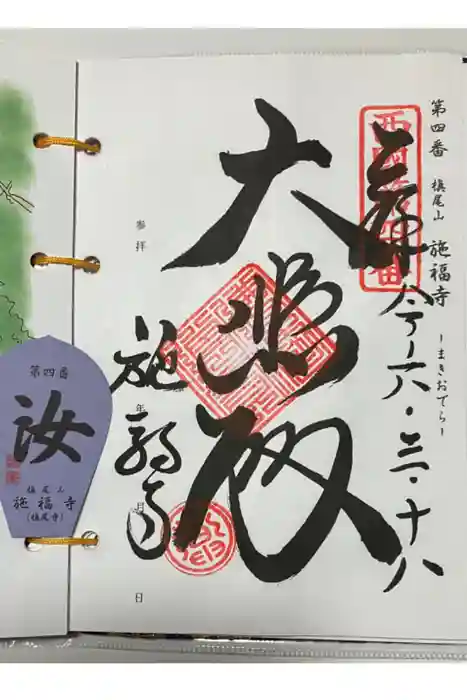 第四番 槇尾山 施福寺 ーまきおでらー
西国第四番
奉拝 令六・三・十八
大悲殿
参拝 年 月 日
施福寺
第四番
汝
槇尾山
施福寺
(槇尾寺)